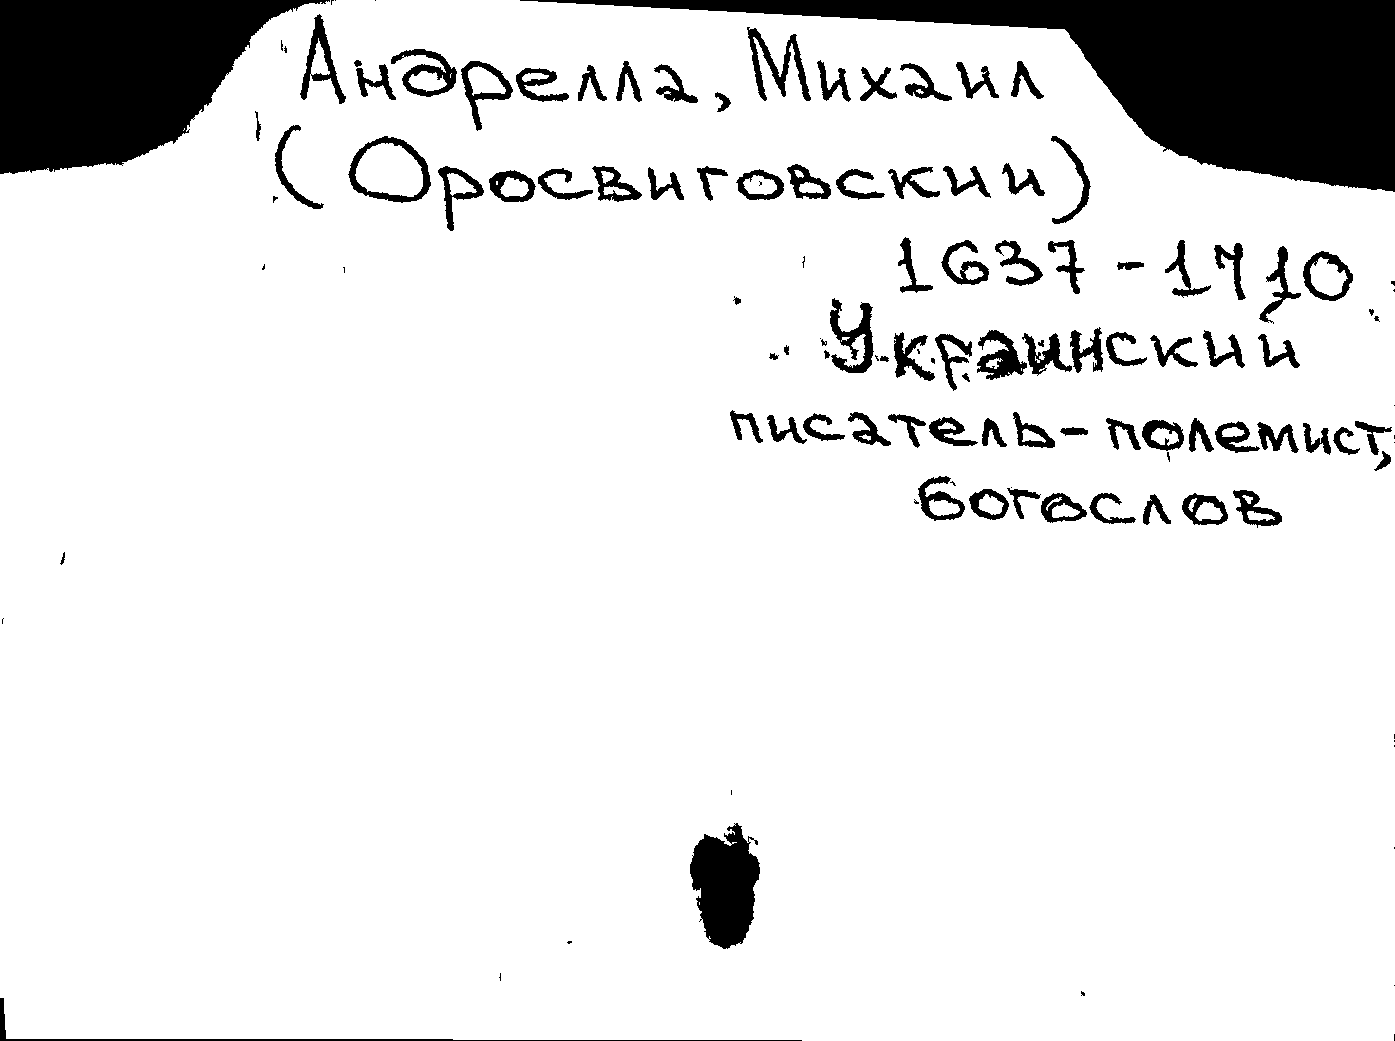 Андрелла, Михаил
(Оросвиговскии)
1637-1710
Украинский
писатель-полемист,
богослов